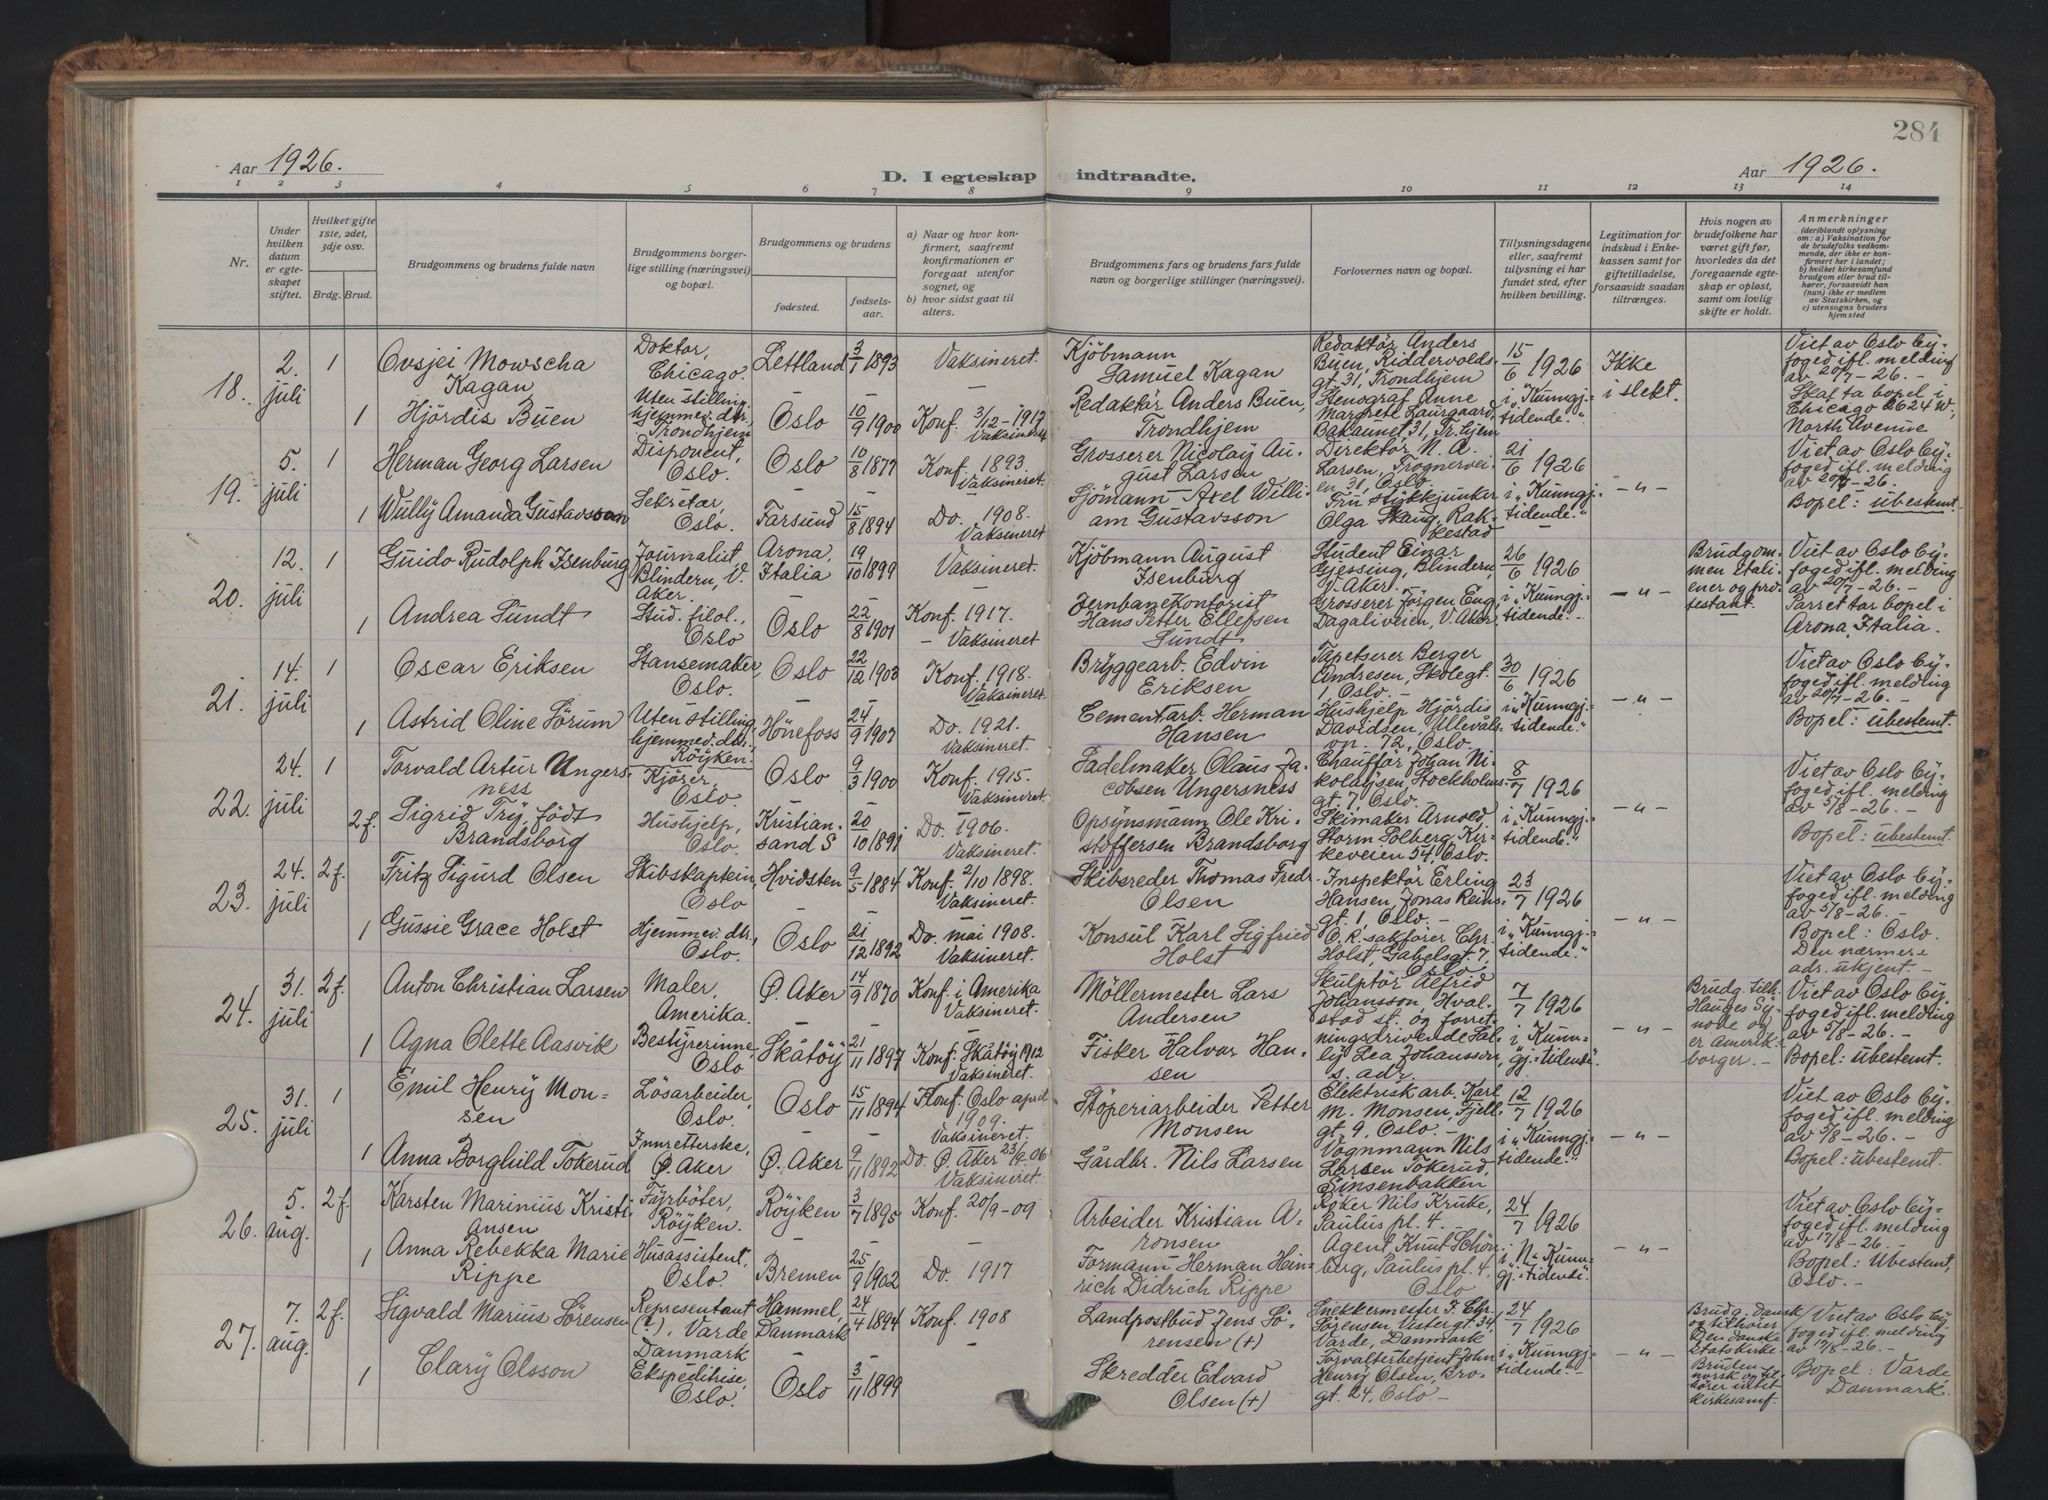 284
Aar 1926.
D. I egteskap indtraadte.
Aar 1926.
1 2 3 4 5 6 7 8 9 10 11 12 13 14
Nr.
Under hvilken datum er egteskapet stiftet.
Hvilket gifte 1ste, 2det, 3dje osv.
Brdg. Brud.
Brudgommens og brudens fulde navn
Brudgommens borgerlige stilling (næringsvei) og bopæl.
Brudgommens og brudens
fødested.
fødselsaar.
a) Naar og hvor konfirmert, saafremt konfirmationen er foregaat utenfor sognet, og
b) hvor sidst gaat til alters.
Brudgommens fars og brudens fars fulde navn og borgerlige stillinger (næringsvei).
Forlovernes navn og bopæl.
Tillysningsdagene eller, saafremt tillysning ei har fundet sted, efter hvilken bevilling.
Legitimation for indskud i Enkekassen samt for giftetilladelse, forsaavidt saadan tiltrænges.
Hvis nogen av brudefolkene har været gift før, hvorledes da det foregaaende egteskap er opløst, samt om lovlig skifte er holdt.
Anmerkninger (deriblandt oplysning om: a) Vaksination for de brudefolks vedkommende, der ikke er konfirmert her i landet; b) hvilket kirkesamfund brudgom eller brud tilhører, forsaavidt han (hun) ikke er medlem av Statskirken, og c) utensogns bruders hjemsted
18. 2. juli 1
Ovsjei Mowscha Kagan
Doktor, Chicago.
Lettland 3/1 1893
Vaksineret.
Kjöbmann Samuel Kagan
Redaktör Anders Buen, Riddervolds gt. 31, Trondhjem
15/6 1926 i "Kunngj. tidende."
Ikke i slekt.
Viet av Oslo byfoged ifl. melding av 20/7-26. -
Skal ta bopel i Chicago 2624 W, North Avenue
1 Hjördis Buen
Uten stilling, hjemmev. dtr, Trondhjem
Oslo 10/9 1900
Konf. 3/12-1917 Vaksineret
Redaktör Anders Buen, Trondhjem
Stensgraf Anne Margrete Laurgaard, Bakaunet 31, Tr.hjem
19. 5. juli 1
Herman Georg Larsen
Disponent, Oslo.
Oslo 10/8 1877
Konf. 1893. Vaksineret.
Grosserer Nicolay August Larsen
Direktör N. A. Larsen, Trognerveien 31, Oslo.
21/6 1926 i "Kunngj. tidende."
- " -
Viet av Oslo byfoged ifl. melding av 20/7-26.
Bopel: ubestemt.
1 Wully Amanda Gustavsson
Sekretær, Oslo.
Farsund 15/8 1894
Do. 1908. Vaksineret
Sjömann Axel William Gustavsson
Fru stykkjunker Olga Skaug, Rakkestad
20. 12. juli 1
Guido Rudolph Isenburg
Journalist, Blindern, V. Aker.
Arona, Italia 19/10 1899
Vaksineret.
Kjöbmann August Isenburg
Student Einar Gjessing, Blindern, V. Aker.
26/6 1926 i "Kunngj. tidende." -
- " -
Brudgommen italiener og protestant.
Viet av Oslo byfoged ifl. melding av 20/7-26. -
Parret tar bopel i Arona, Italia.
1 Andrea Sundt
Stud. filol., Oslo
Oslo 22/8 1901
Konf. 1917. - Vaksineret
Jernbanekontorist Hans Petter Ellefsen Sundt
Grosserer Jörgen Eng, Dagaliveien, V. Aker,
21. 14. juli 1
Oscar Eriksen
Stansemaker, Oslo.
Oslo 22/12 1903
Konf. 1918. Vaksineret.
Bryggearb. Edvin Eriksen
Tapetserer Berger Andresen, Skolegt. 1, Oslo. -
30/6 1926 i "Kunngj. tidende."
- " -
Viet av Oslo byfoged ifl. melding av 20/7-26. -
Bopel: ubestemt.
1 Astrid Oline Sörum
Uten stilling, hjemmev. dtr., Röyken.
Hönefoss 24/9 1907
Do. 1921. Vaksineret.
Cementarb. Herman Hansen
Hushjelp Hjördis Davidsen, Ullevålsvn. 72, Oslo.
22. 24. juli 1
Torvald Artur Ungersness
Kjörer, Oslo.
Oslo 9/3 1900
Konf. 1915. Vaksineret.
Sadelmaker Olaus Jacobsen Ungersness
Chaufför Johan Nikolaysen, Stockholmsgt. 7, Oslo.
8/7 1926 i "Kunngj. tidende."
- " -
Viet av Oslo byfoged ifl. melding av 5/8-26. -
Bopel: ubestemt.
2 f. Sigrid Try, födt Brandsborg
Hushjelp, Oslo.
Kristiansand S 20/10 1891
Do. 1906. Vaksineret.
Opsynsmann Ole Kristoffersen Brandsborg
Skimaker Arnold Storm Solberg, Kirkeveien 54, Oslo.
23. 24. juli 2 f.
Fritz Sigurd Olsen
Skibskaptein, Oslo
Hvidsten 9/5 1884
Konf. 2/10 1898. Vaksineret.
Skibsreder Thomas Fredr. Olsen
Inspektör Erling Hansen, Jonas Reinsgt. 1, Oslo. -
23/7 1926 i "Kunngj. tidende."
- " -
Viet av Oslo byfoged ifl. melding av 5/8-26. -
Bopel: Oslo. Den nærmere adr. ukjent. -
1 Gussie Grace Holst
Hjemmev. dtr., Oslo.
Oslo 21/12 1892
Do. mai 1908. Vaksineret.
Konsul Karl Sigfried Holst
O.R. sakförer Chr. Holst, Gabelsgt. 7, Oslo
24. 31. juli 2 f.
Anton Christian Larsen
Maler, Amerika.
Ö. Aker 14/9 1870
Konf. i Amerika Vaksineret.
Möllermester Lars Andersen
Skulptör Alfrid Johansson, Hvalstad st. og forretningsdrivende Sally Lea Johanssen, s. adr.
7/7 1926 i "Kunngj. tidende".
- " -
Brudg. tilh. Hauges Synode og er Amerik. borger. -
Viet av Oslo byfoged ifl. melding av 5/8-26. -
Bopel: ubestemt.
1 Agna Olette Aasvik
Bestyrerinne, Oslo
Skåtöy 21/11 1897
Konf. Skåtöy 1912 Vaksineret.
Fisker Halvor Hansen
25. 31. juli 1
Emil Henry Monsen
Lösarbeider, Oslo.
Oslo 15/11 1894
Konf. Oslo april 1909. Vaksineret.
Stöperiarbeider Petter Monsen
Elektrisk arb. Karl M. Monsen, Fjellgt. 9, Oslo. -
12/7 1926 i "Kunngj. tidende."
- " -
Viet av Oslo byfoged ifl. melding av 5/8-26. -
Bopel: ubestemt.
1 Anna Borghild Tokerud
Innretterske, Ö. Aker
Ö. Aker 9/11 1892
Do. Ö. Aker 23/9-06 Vaksineret.
Gårdbr. Nils Larsen
Vognmann Nils Larsen Tokerud, Sinsenbakken
26. 5. aug. 2 f.
Karsten Marinius Kristiansen
Fyrböter, Röyken.
Röyken 3/7 1895
Konf. 20/9-09
Arbeider Kristian Aronsen
Röker Nils Kruke, Paulus pl. 4. -
24/7 1926 i N. Kunngj. tidende".
- " -
Viet av Oslo byfoged ifl. melding av 17/8-26. -
Bopel: Ubestemt, Oslo. -
1 Anna Rebekka Marie Rippe
Husassistent, Oslo.
Bremen 25/9 1902
Do. 1917
Formann Herman Heinrich Didrich Rippe
Agent Knut Schönberg, Paulus pl. 4, Oslo
27. 7. aug. 2 f.
Sigvald Marius Sörensen
Representant (?), Varde Danmark
Hammel, Danmark 24/4 1894
Konf. 1908
Landpostbud Jens Sörensen (+)
Snekkermester J. Chr. Sörensen, Vestergt. 34, Varde, Danmark
24/7 1926 i "Kunngj. tidende." -
- " -
Brudg. Dansk og tilhörer Den danske Statskirke. Bruden norsk og tilhörer intet kirkesamf.
Viet av Oslo byfoged ifl. melding av 17/8-26. -
Bopel: Varde, Danmark.
1 Clary Olsson
Ekspeditrise, Oslo.
Oslo 3/11 1899
Skredder Edvard Olsen (+)
Forvalterbetjent John Henry Olsen, Krogt. 24, Oslo. -